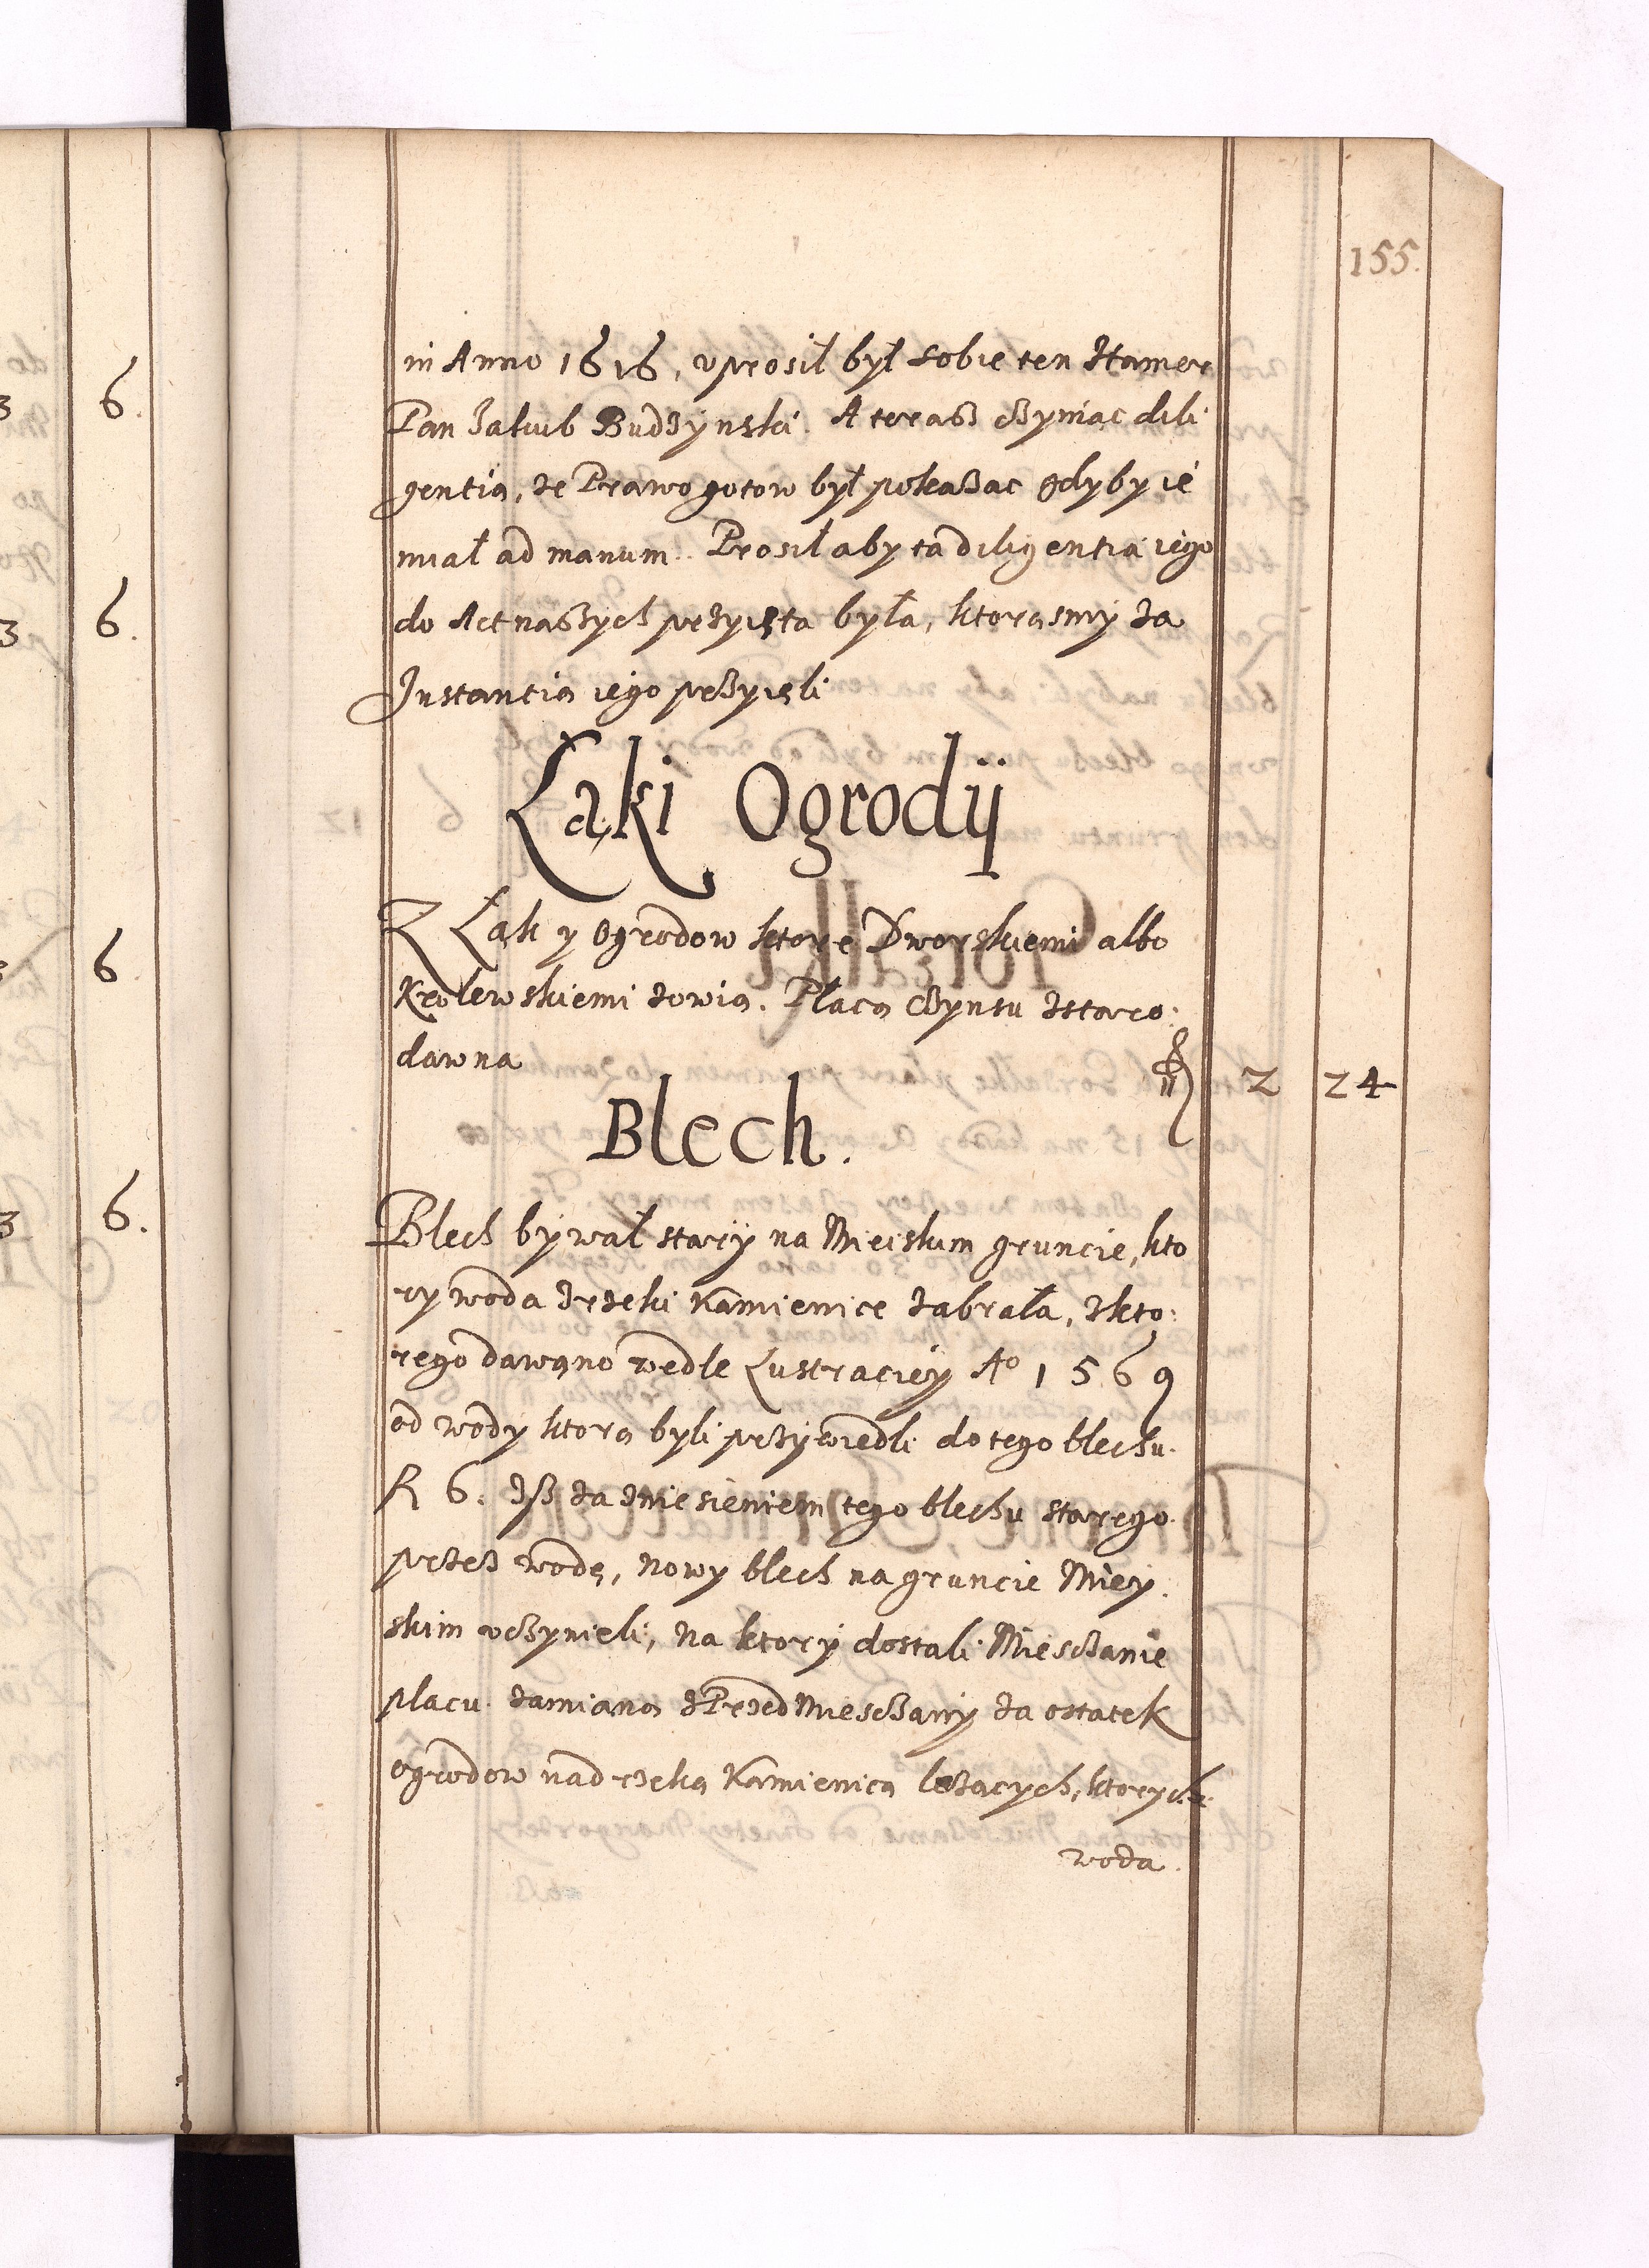 155.
in Anno 1616, uprosił był sobie ten Hamer
Pan Jakub Budzÿnski. A terasz czyniąc dili
gentią, że Prawo gotow był pokaszac gdyby ie
miał ad manum. Prosił aby ta diligentia iego
do Act naszych przyięta była, ktorąsmÿ za
Instantią iego przyięli
Łąki Ogrodÿ
Z Łąk y Ogrodow ktore Dworskiemi albo
Krolewskiemi zowią. Płacą Czynsu zstaro:
dawna ƒl 2 24
Blech.
Blech bÿwał starÿ na Mieiskim gruncie, kto
ry woda zrzeki Kamienice zabrała, zkto:
rego dawąno wedle Lustraciey Aº 1569
od wody ktorą byli przÿwiedli do tego blechu.
ƒl 6. Isz za zniesieniem tego blechu starego
przez wodę, nowy blech na gruncie Miey.
skim uczynieli, na ktorÿ dostali Miesczanie
placu zamianą z Przedmiesczany za ostatek
ogrodow nad rzeką Kamienicą leżących, ktorych
woda.
3 6.
3 6.
6
3 6.